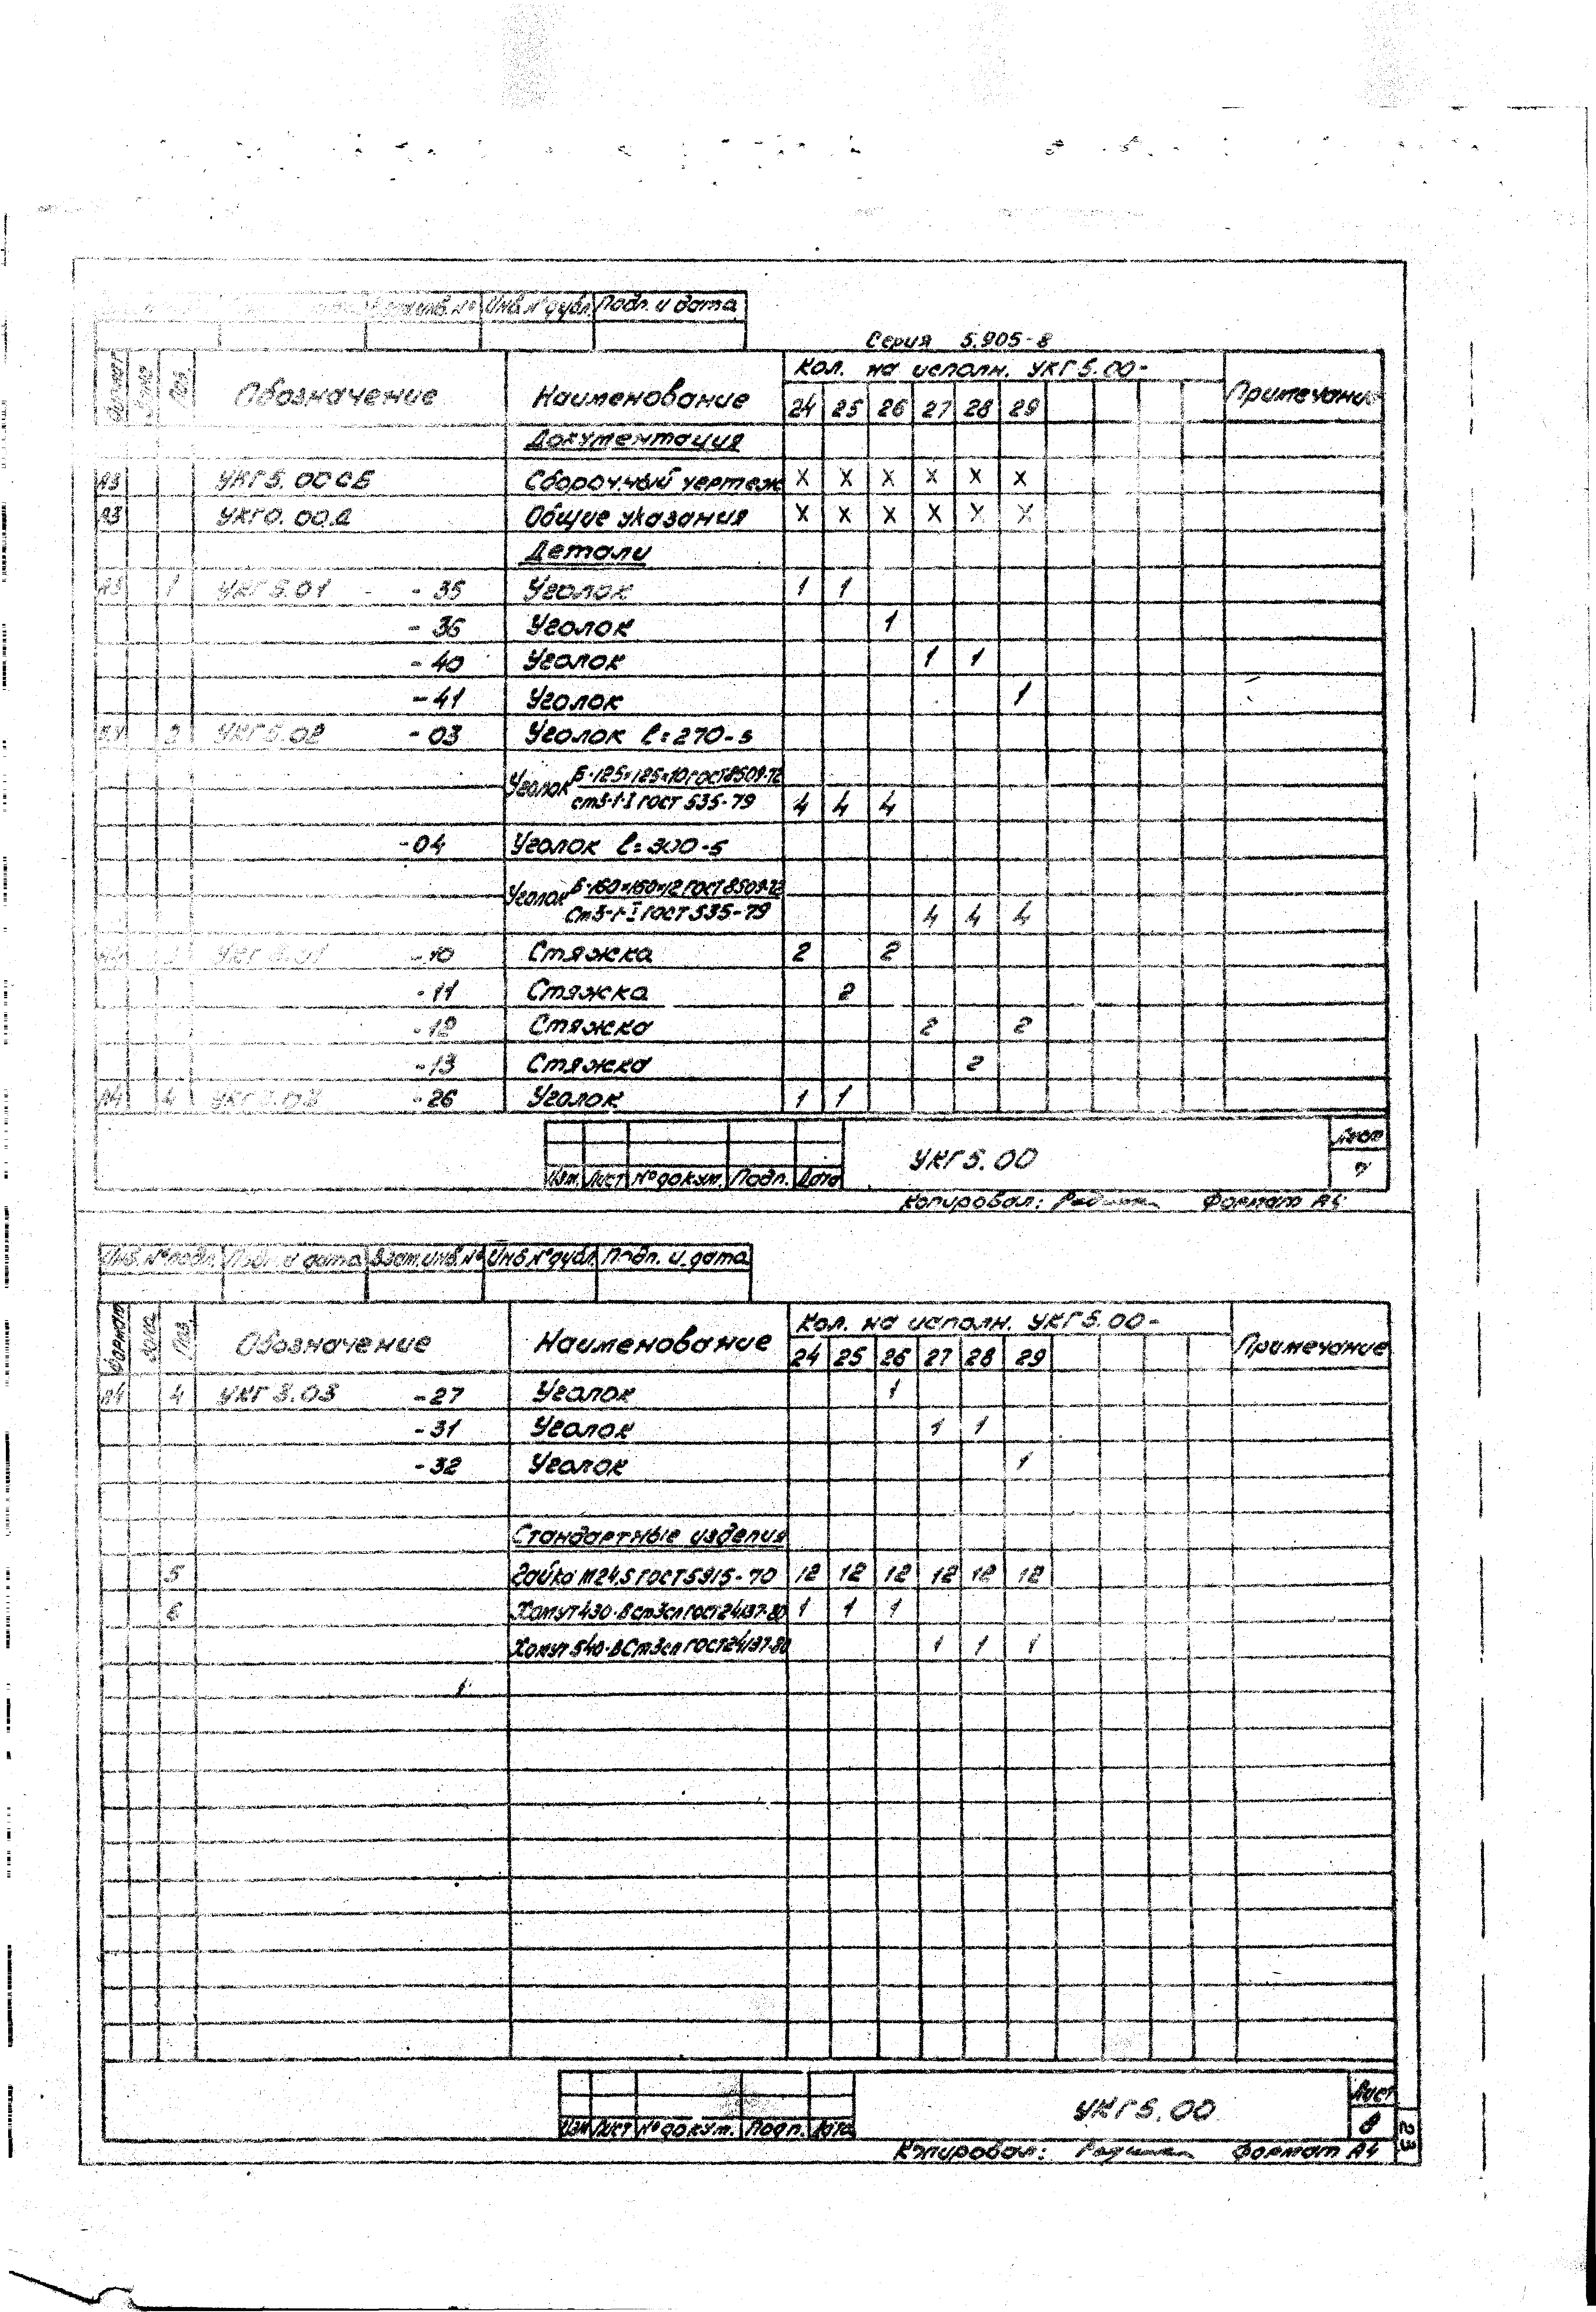 Взам.инв.№ Инв.№дубл. Подп. и дата
Серия 5.905-8
Формат Зона Поз. Обозначение Наименование Кол. на исполн. УКГ5.00- Примечание
24 25 26 27 28 29
Документация
А3 УКГ5.00СБ Сборочный чертеж X X X X X X
А3 УКГ0.00Д Общие указания X X X X X X
Детали
А3 1 УКГ5.01 -35 Уголок 1 1
-36 Уголок 1
-40 Уголок 1 1
-41 Уголок 1
2 УКГ5.02 -03 Уголок l=270-5
Уголок Б-125×125×10 ГОСТ 8509-72
ст3-1-I ГОСТ 535-79 4 4 4
-04 Уголок l=300-5
Уголок Б-160×160×12 ГОСТ 8509-72
Ст3-1-I ГОСТ 535-79 4 4 4
-10 Стяжка 2 2
-11 Стяжка 2
-12 Стяжка 2 2
-13 Стяжка 2
А4 4 УКГ3.03 -26 Уголок 1 1
Изм. Лист № докум. Подп. Дата
УКГ5.00
Лист
7
Копировал: Формат А4
Инв.№подл. Подп. и дата Взам.инв.№ Инв.№дубл. Подп. и дата
Формат Зона Поз. Обозначение Наименование Кол. на исполн. УКГ5.00- Примечание
24 25 26 27 28 29
А4 4 УКГ3.03 -27 Уголок 1
-31 Уголок 1 1
-32 Уголок 1
Стандартные изделия
5 Гайка М24.5 ГОСТ 5915-70 12 12 12 12 12 12
6 Хомут 430-ВСт3сп ГОСТ 24137-80 1 1 1
Хомут 540-ВСт3сп ГОСТ 24137-80 1 1 1
Изм Лист № докум. Подп. Дата
УКГ5.00
Лист
8
23
Копировал: Формат А4